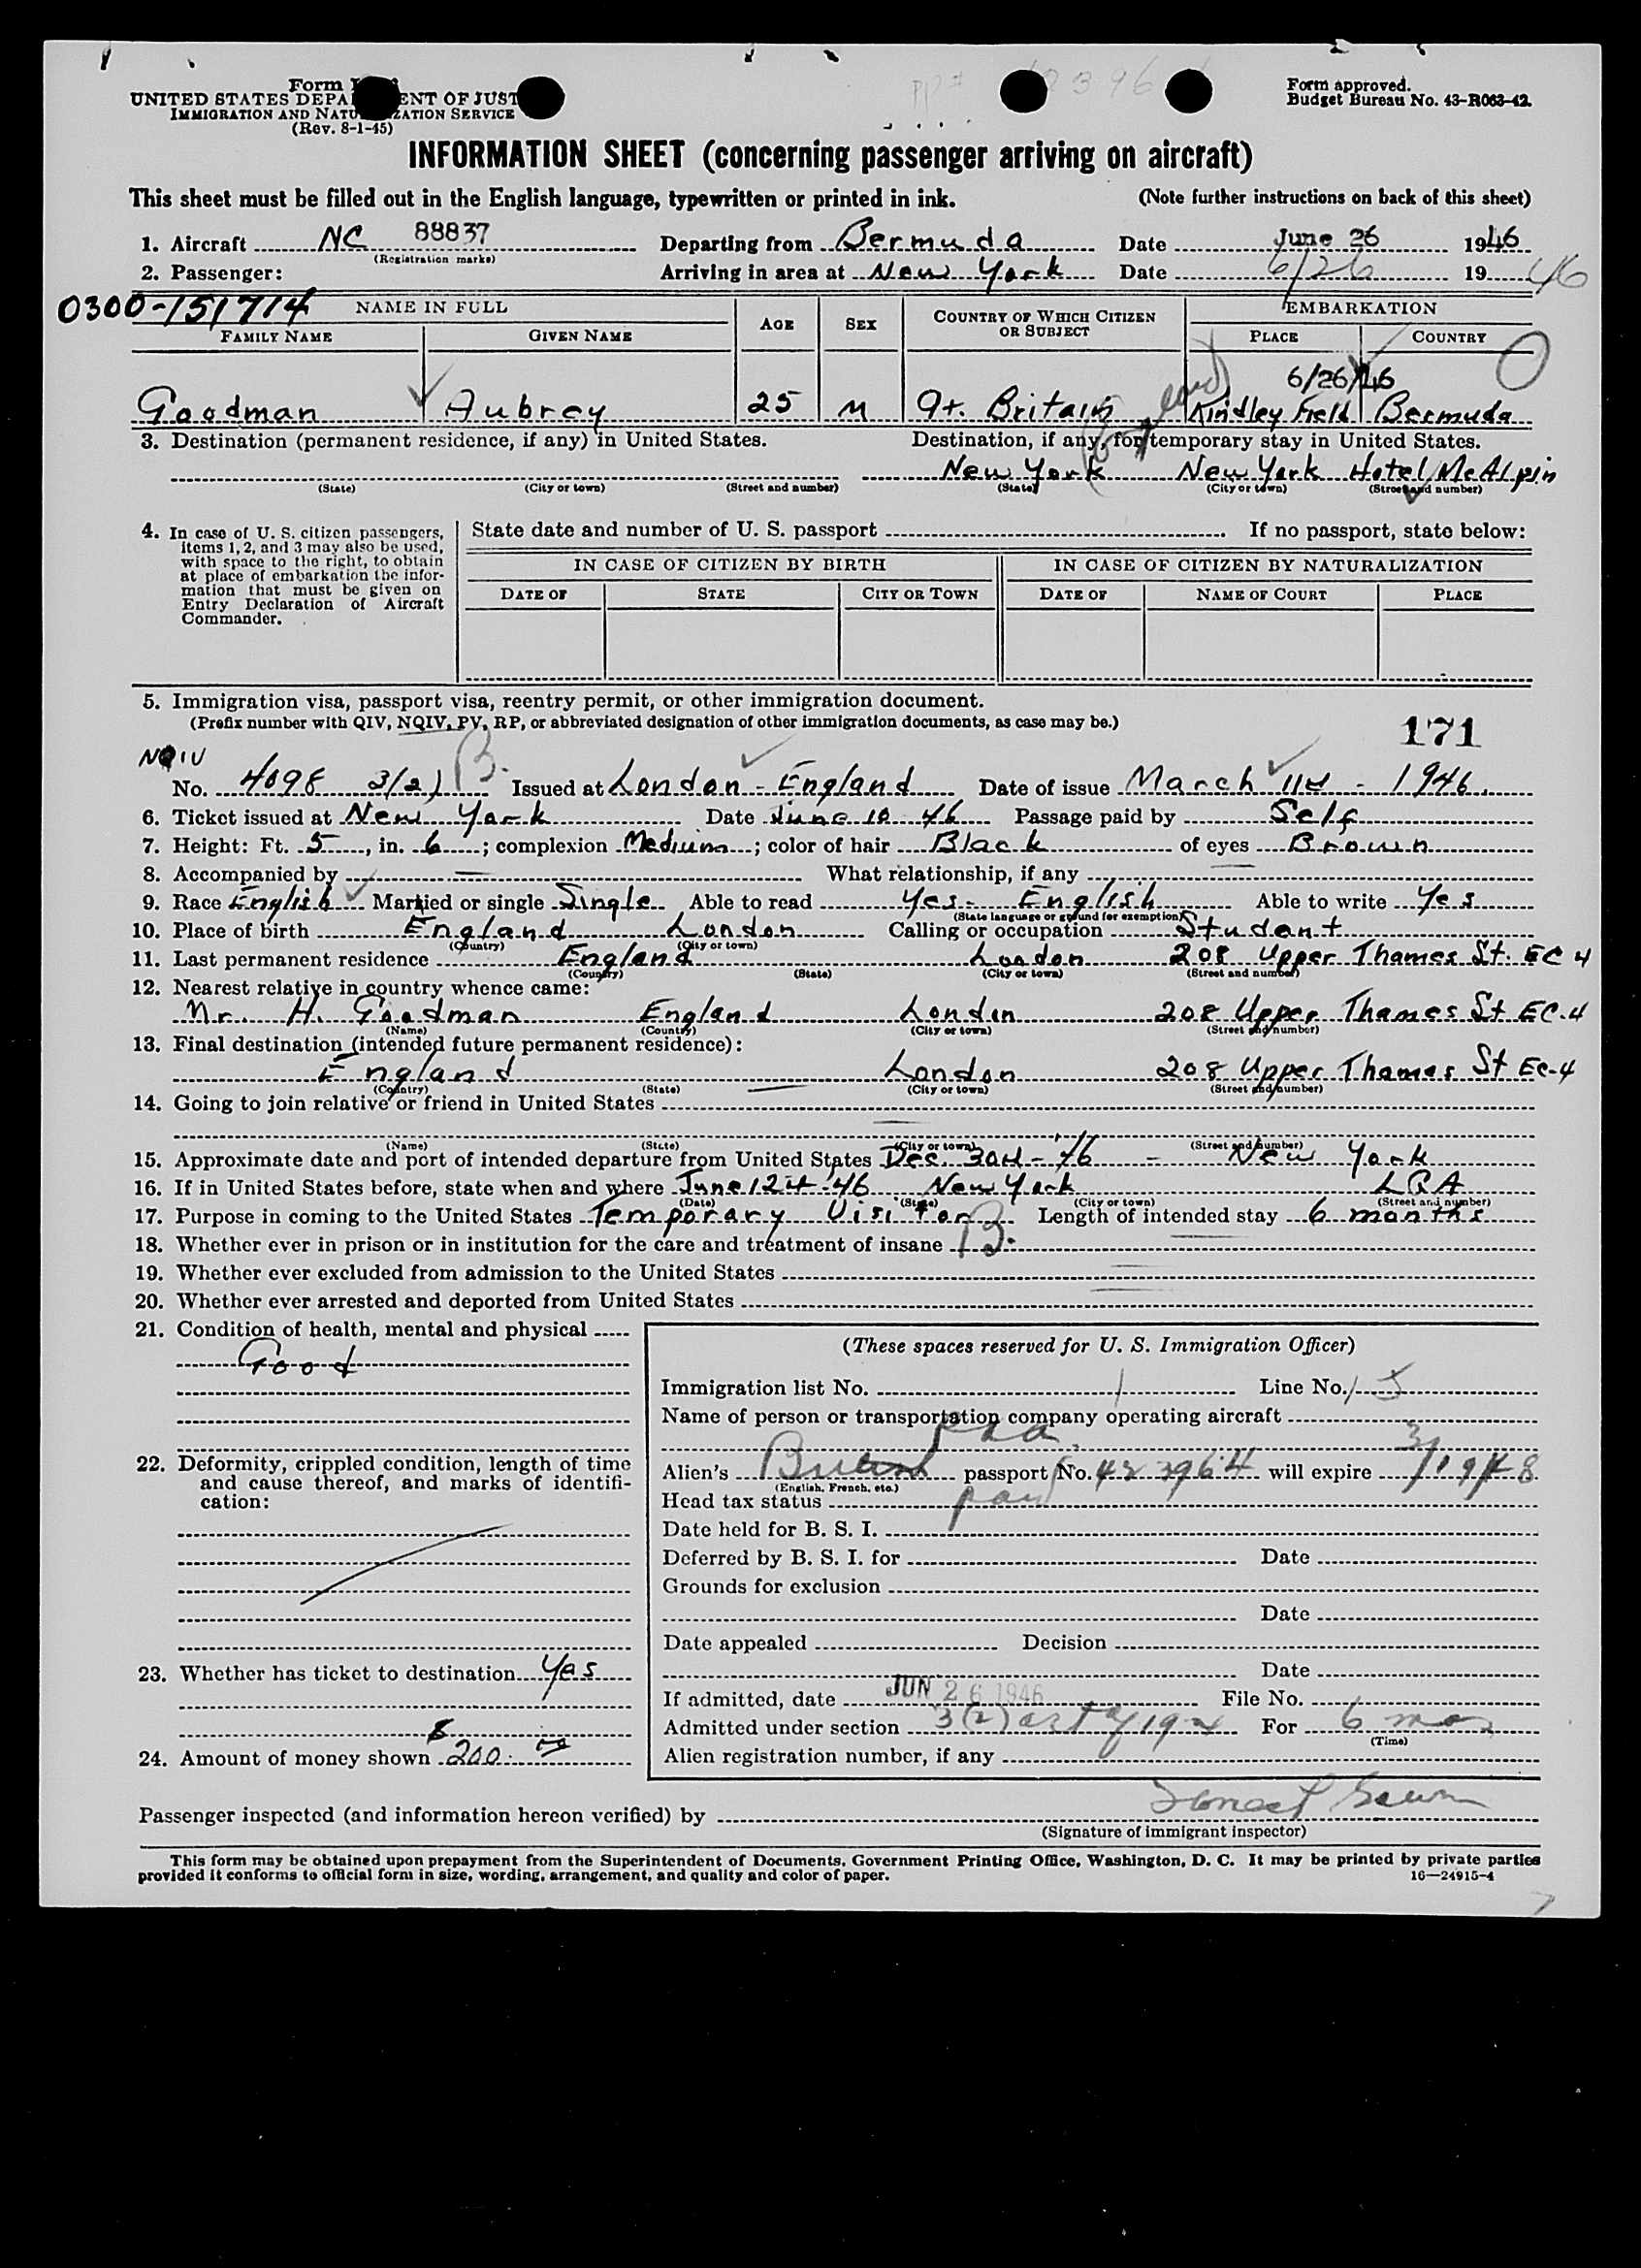 Form
UNITED STATES DEPA ENT OF JUST
IMMIGRATION AND NATU ZATION SERVICE
(Rev. 8-1-45)
Form approved.
Budget Bureau No. 43-R063-42.
INFORMATION SHEET (concerning passenger arriving on aircraft)
This sheet must be filled out in the English language, typewritten or printed in ink. (Note further instructions on back of this sheet)
1. Aircraft NC 88837 Departing from Bermuda Date June 26 1946
(Registration marks)
2. Passenger: Arriving in area at New York Date 6/26 1946
0300-151714 NAME IN FULL AGE SEX COUNTRY OF WHICH CITIZEN OR SUBJECT EMBARKATION
FAMILY NAME GIVEN NAME PLACE COUNTRY
6/26/46
Goodman Aubrey 25 M Gt. Britain Kindley Field Bermuda
3. Destination (permanent residence, if any) in United States. Destination, if any, for temporary stay in United States.
New York New York Hotel McAlpin
(State) (City or town) (Street and number) (State) (City or town) (Street and number)
4. In case of U. S. citizen passengers, items 1, 2, and 3 may also be used, with space to the right, to obtain at place of embarkation the information that must be given on Entry Declaration of Aircraft Commander.
State date and number of U. S. passport If no passport, state below:
IN CASE OF CITIZEN BY BIRTH IN CASE OF CITIZEN BY NATURALIZATION
DATE OF STATE CITY OR TOWN DATE OF NAME OF COURT PLACE
5. Immigration visa, passport visa, reentry permit, or other immigration document.
(Prefix number with QIV, NQIV, PV, RP, or abbreviated designation of other immigration documents, as case may be.)
171
NQIV
No. 4098 3(2) B. Issued at London - England Date of issue March 11th - 1946.
6. Ticket issued at New York Date June 10 46 Passage paid by Self
7. Height: Ft. 5, in. 6; complexion Medium; color of hair Black of eyes Brown
8. Accompanied by What relationship, if any
9. Race English Married or single Single Able to read Yes - English Able to write Yes
(State language or ground for exemption)
10. Place of birth England London Calling or occupation Student
(Country) (City or town)
11. Last permanent residence England London 208 Upper Thames St. EC 4
(Country) (State) (City or town) (Street and number)
12. Nearest relative in country whence came:
Mr. H. Goodman England London 208 Upper Thames St EC.4
(Name) (Country) (City or town) (Street and number)
13. Final destination (intended future permanent residence):
England London 208 Upper Thames St EC-4
(Country) (State) (City or town) (Street and number)
14. Going to join relative or friend in United States
(Name) (State) (City or town) (Street and number)
15. Approximate date and port of intended departure from United States Dec. - 46 - New York
16. If in United States before, state when and where June 12th 46 New York LGA
(Date) (State) (City or town) (Street and number)
17. Purpose in coming to the United States Temporary Visitor Length of intended stay 6 months
18. Whether ever in prison or in institution for the care and treatment of insane B.
19. Whether ever excluded from admission to the United States
20. Whether ever arrested and deported from United States
21. Condition of health, mental and physical
Good
22. Deformity, crippled condition, length of time and cause thereof, and marks of identification:
23. Whether has ticket to destination Yes
24. Amount of money shown $200.00
(These spaces reserved for U. S. Immigration Officer)
Immigration list No. 1 Line No. 5
Name of person or transportation company operating aircraft
PAA
Alien's British passport No. 423964 will expire 3/1948
(English, French, etc.)
Head tax status paid
Date held for B. S. I.
Deferred by B. S. I. for Date
Grounds for exclusion
Date
Date appealed Decision
Date
If admitted, date JUN 26 1946 File No.
Admitted under section 3(2) act of 1924 For 6 mos
(Time)
Alien registration number, if any
Passenger inspected (and information hereon verified) by
(Signature of immigrant inspector)
This form may be obtained upon prepayment from the Superintendent of Documents, Government Printing Office, Washington, D. C. It may be printed by private parties
provided it conforms to official form in size, wording, arrangement, and quality and color of paper. 16—24915-4